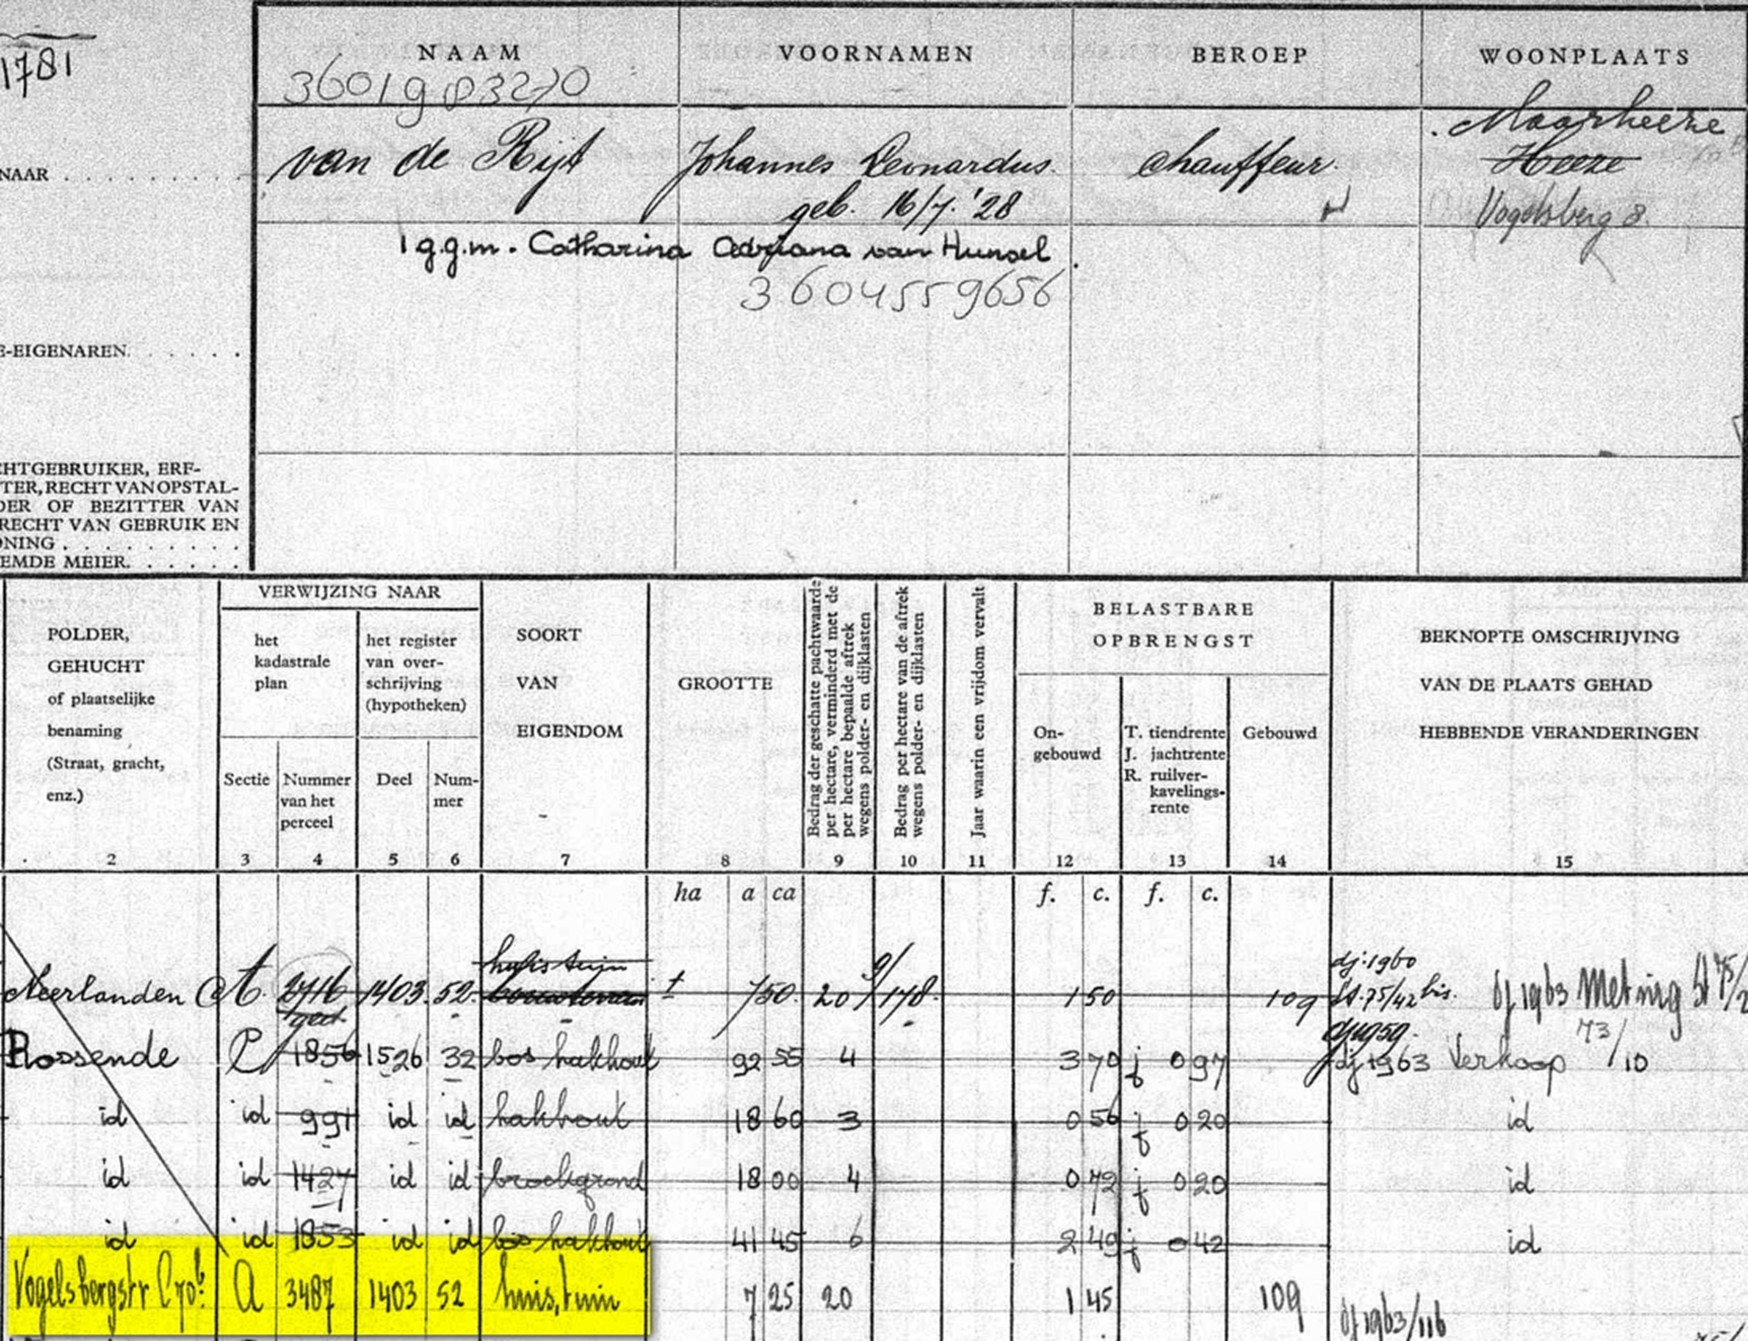 1781
NAAM VOORNAMEN BEROEP WOONPLAATS
3601983270
Maarheeze
NAAR van de Rijt Johannes Leonardus. chauffeur. Heeze
geb. 16/7.'28 Vogelsberg 8
i g.g.m. Catharina Adriana van Hunsel.
3604559656
E-EIGENAREN.
CHTGEBRUIKER, ERF-
TER, RECHT VAN OPSTAL-
DER OF BEZITTER VAN
RECHT VAN GEBRUIK EN
ONING
EMDE MEIER.
POLDER,
GEHUCHT
of plaatselijke
benaming
(Straat, gracht,
enz.)
2
VERWIJZING NAAR
het
kadastrale
plan
Sectie
3
Nummer
van het
perceel
4
het register
van over-
schrijving
(hypotheken)
Deel
5
Num-
mer
6
SOORT
VAN
EIGENDOM
7
GROOTTE
8
Bedrag der geschatte pachtwaarde
per hectare, verminderd met de
per hectare bepaalde aftrek
wegens polder- en dijklasten
9
Bedrag per hectare van de aftrek
wegens polder- en dijklasten
10
Jaar waarin een vrijdom vervalt
11
BELASTBARE
OPBRENGST
On-
gebouwd
12
T. tiendrente
J. jachtrente
R. ruilver-
kavelings-
rente
13
Gebouwd
14
BEKNOPTE OMSCHRIJVING
VAN DE PLAATS GEHAD
HEBBENDE VERANDERINGEN
15
ha a ca f. c. f. c.
huis tuin dj:1960
Neerlanden A. 2716 1403. 52. 7 50. 20 9/178. 1 50 109 St.75/42 bis. dj 1963 Meting
ged. 73/10
Rossende 1856 1526 32 bos hakhout 92 55 4 3 70 j 0 97 dj 1963 Verkoop
id id 991 id id hakhout 18 60 3 0 56 j 0 20 id
id id 1427 id id broekgrond 18 00 4 0 72 j 0 20 id
id id 1853 id id bos hakhout 41 45 6 2 49 j 0 42 id
Vogelsbergstr A 3487 1403 52 huis, tuin 7 25 20 1 45 109
dj 1963/116